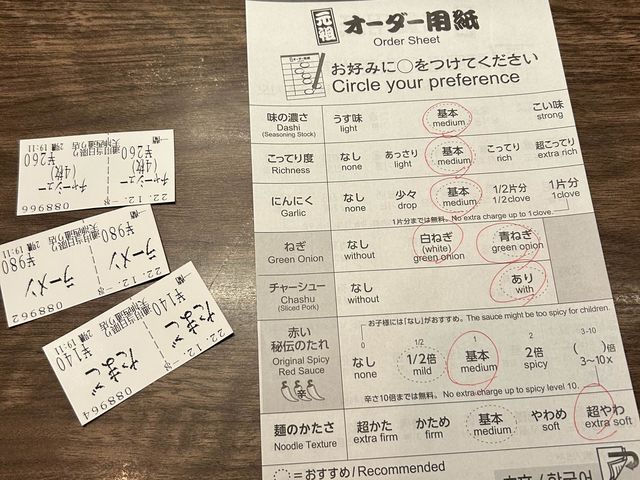 元祖 オーダー用紙
Order Sheet
お好みに○をつけてください
Circle your preference
味の濃さ
Dashi
(Seasoning Stock)
うす味
light
基本
medium
こい味
strong
こってり度
Richness
なし
none
あっさり
light
基本
medium
こってり
rich
超こってり
extra rich
にんにく
Garlic
なし
none
少々
drop
基本
medium
1/2片分
1/2clove
1片分
1clove
1片分までは無料。No extra charge up to 1clove.
ねぎ
Green Onion
なし
without
白ねぎ
(white)
green onion
青ねぎ
green onion
チャーシュー
Chashu
(Sliced Pork)
なし
without
あり
with
赤い
秘伝のたれ
Original Spicy
Red Sauce
辛
お子様には「なし」がおすすめ。The sauce might be too spicy for children.
0
なし
none
1/2
1/2倍
mild
1
基本
medium
2
2倍
spicy
3-10
( )倍
3~10x
辛さ10倍までは無料。No extra charge up to spicy level 10.
麺のかたさ
Noodle Texture
超かた
extra firm
かため
firm
基本
medium
やわめ
soft
超やわ
extra soft
=おすすめ/Recommended
チャーシュー
(4枚)
¥260
チャーシュー
(4枚)
¥260
088966
ラーメン
¥980
ラーメン
¥980
088962
たまご
¥140
たまご
¥140
088964